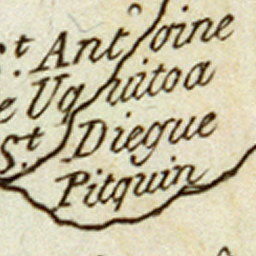 St Antoine
e Uquitoa
St Diegue
Pitquin